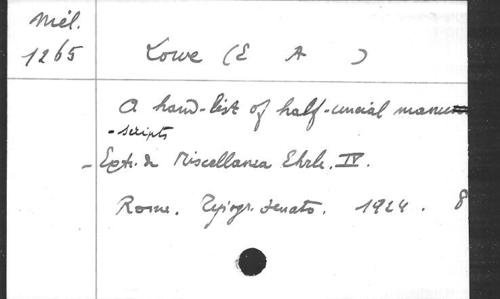 Mél.
1265
Lowe (E A )
A hand-list of half-uncial manu
-scripts
- Extr. de Miscellanea Ehrle. IV.
Rome. Tipogr. Senato. 1924. 8